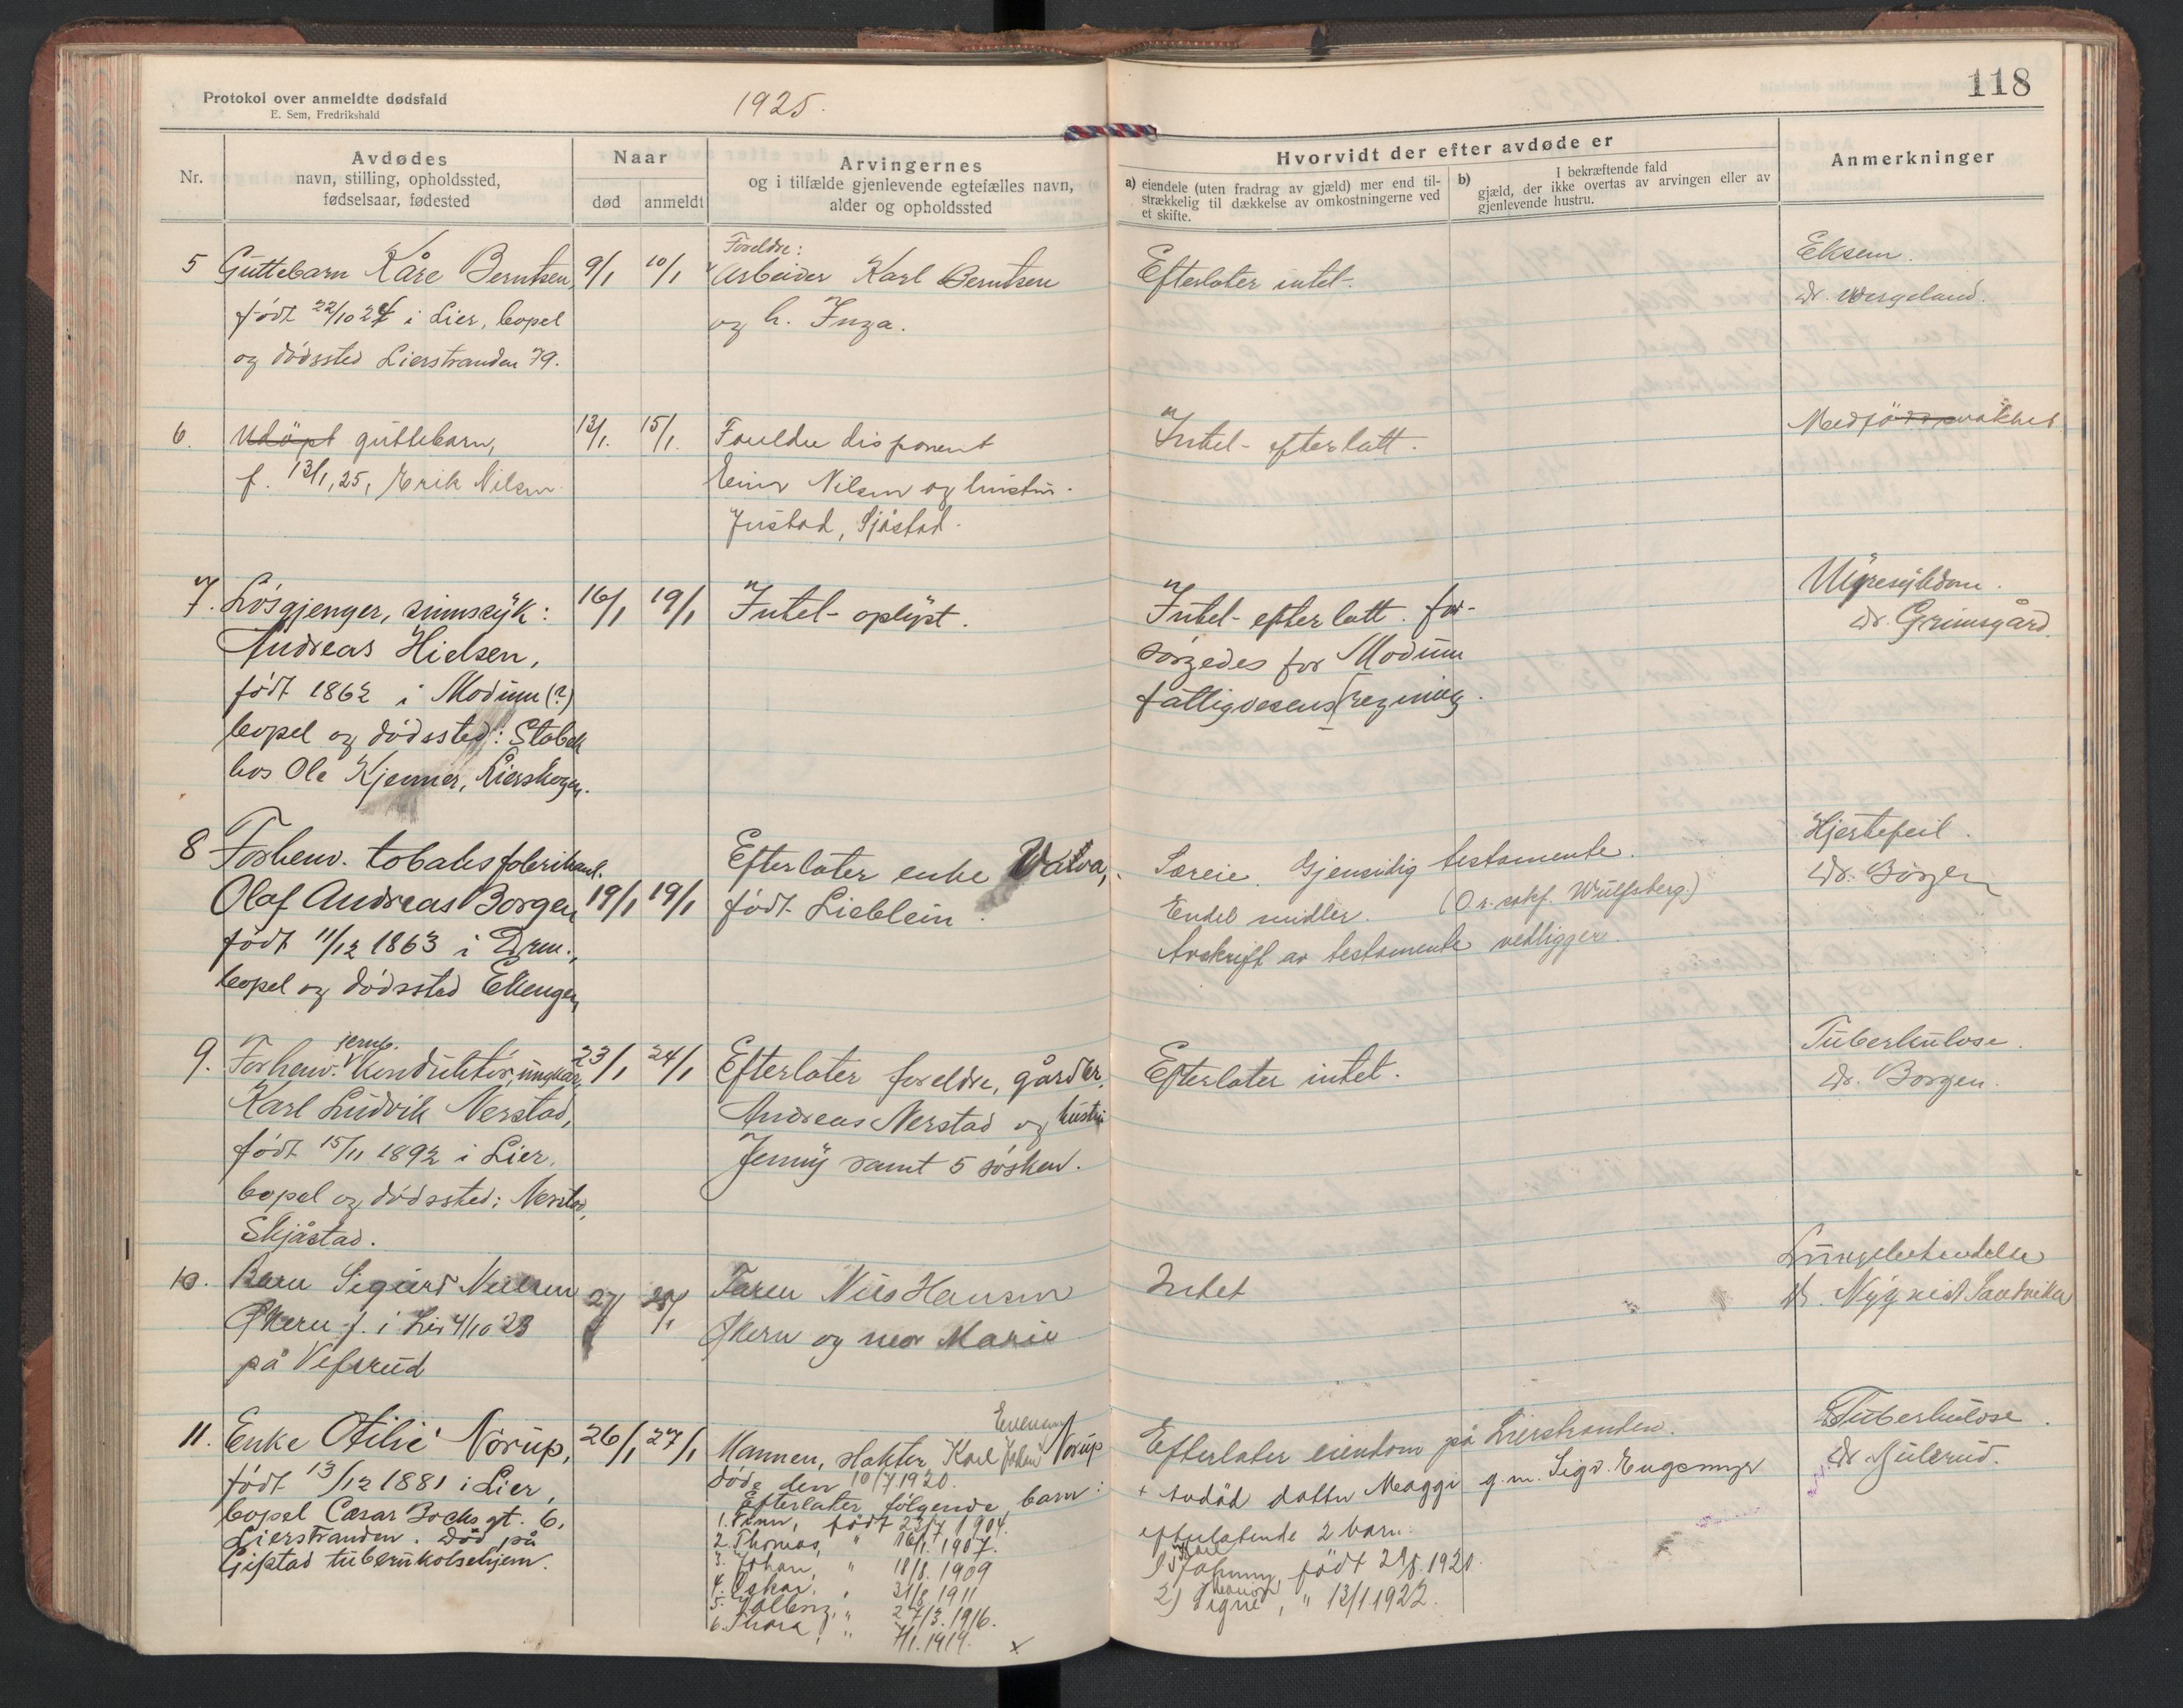 Protokol over anmeldte dødsfald
E. Sem, Fredrikshald
1925.
118
Nr.
Avdødes
navn, stilling, opholdssted,
fødselsaar, fødested
Naar
død
anmeldt
Arvingernes
og i tilfælde gjenlevende egtefælles navn,
alder og opholdssted
Hvorvidt der efter avdøde er
a) eiendele (uten fradrag av gjæld) mer end til-
strækkelig til dækkelse av omkostningerne ved
et skifte.
b) I bekræftende fald
gjæld, der ikke overtas av arvingen eller av
gjenlevende hustru.
Anmerkninger
5 Guttebarn Kåre Berntsen,
født 22/10 24 i Lier, bopel
og dødssted Lierstranden 79.
9/1
10/1
Foreldre:
Arbeider Karl Berntsen
og h. Inga.
Efterlater intet.
Eksem.
Dr. Wergeland.
6. Udöpt guttebarn,
f. 13/1, 25, Erik Nilsen
13/1.
15/1.
Foreldre disponent
Einar Nilsen og hustru
Justad, Sjåstad.
Intet efterlatt.
7. Løsgjenger, sinnssyk:
Andreas Hielsen,
født 1862 i Modum (?)
bopel og dødssted: Stabek
hos Ole Kjenner, Lierskogen.
16/1
19/1
Intet oplyst.
Intet efterlatt. for-
sørgedes for Modum
fattigvesens regning.
Nyresykdom.
Dr. Grimsgård.
8 Forhenv. tobaksfabrikant.
Olaf Andreas Borgen
født 11/12 1863 i Drm.,
bopel og dødssted Ekengen
19/1
19/1
Efterlater enke Valva,
født Lieblein.
Særeie. Gjensidig testamente.
Endel midler. (O.r.sakf. Wulfsberg.)
Avskrift av testamente vedligger.
Hjertefeil.
Dr. Borgen
9. Forhenv. jernb. konduktør, ungkar,
Karl Ludvik Nerstad,
født 15/11 1892 i Lier,
bopel og dødssted: Nerstad,
Skjåstad.
23/1
24/1
Efterlater foreldre, gårdbr.
Andreas Nerstad og hustru
Jenny samt 5 søsken.
Efterlater intet.
Tuberkulose.
Dr. Borgen.
10. Barn Sigurd Nilsen
Økern f. i Lier 4/10 23
på Vefsrud
27/1
28/1
Faren Nils Hansen
Økern og mor Marie
Intet
Lungebetendelse
Dr. Nyquist Sandvika
11. Enke Otilie Norup,
født 13/12 1881 i Lier,
bopel Cæsar Bocks gt. 6,
Lierstranden. Død på
Gifstad tuberkulosehjem.
26/1
27/1
Mannen, slakter Karl Johan Evensen Norup
døde den 10/7 1920.
Efterlater følgende barn:
1. Finn, født 23/7 1904.
2. Thomas, " 16/1. 1907.
3. Johan, " 18/8. 1909
4. Oskar, " 31/8 1911
5. Solborg, " 27/3. 1916.
6. Thora, " 7/1. 1919. x
Efterlater eiendom på Lierstranden.
+ avdød datter Maggi g.m. Sigv. Engesmyr
efterlatende 2 barn:
1) Karl Johnny, født 29/8. 1920.
2) Signe, " 13/1 1922.
Tuberkulose.
Dr. Gulerud.